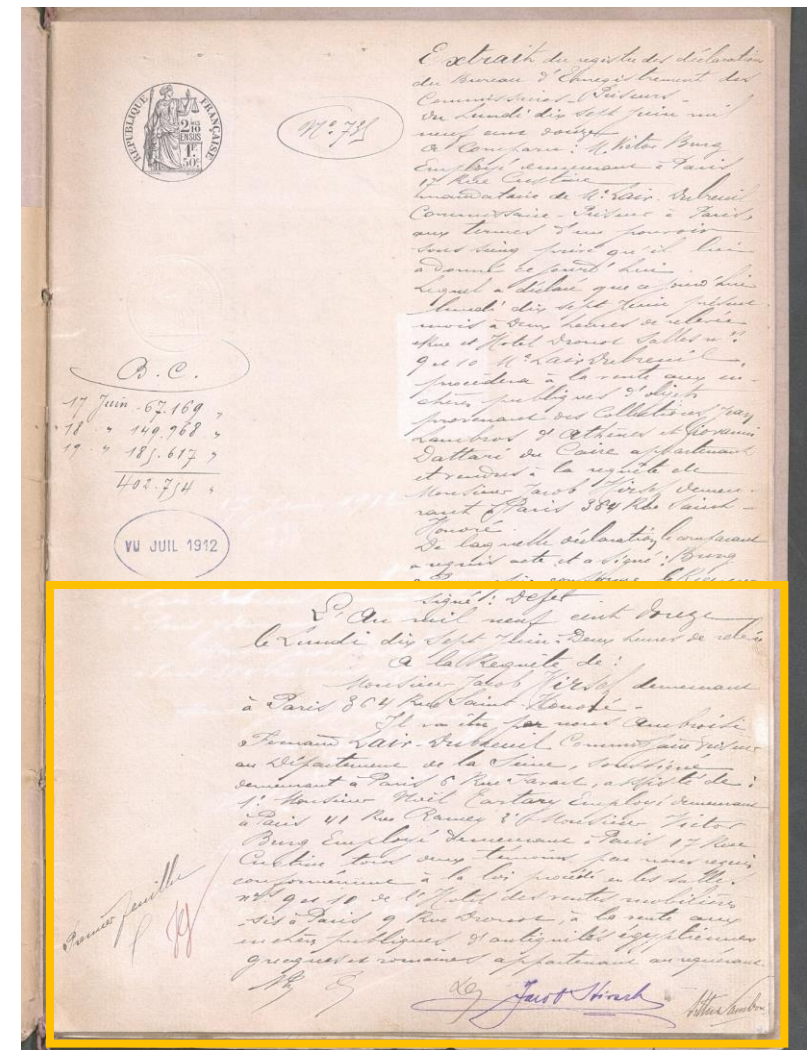 RÉPUBLIQUE FRANÇAISE
2/10 EN SUS
1F 50c
N° 735
Extrait du registre des déclarations
du Bureau d'Enregistrement des
Commissaires-Priseurs-
Du Lundi dix sept Juin mil
neuf cent douze
a Comparu: M. Victor Burg
Employé demeurant à Paris
17 Rue Custine
mandataire de Me Lair-Dubreuil
Commissaire-Priseur à Paris,
aux termes d'un pouvoir
sous seing privé qu'il lui
a donné ce jourd'hui
Lequel a déclaré que ce jourd'hui
lundi dix sept Juin présent
mois à deux heures de relevée
Rue et Hotel Drouot Salles nos
9 et 10 Me Lair Dubreuil,
procédera à la vente aux en-
chères publiques d'objets
provenant des Collections Jean
Lambros d'Athènes et Giovanni
Dattari du Caire appartenant
et vendus à la requête de
Monsieur Jacob Hirsch demeu-
rant à Paris 364 Rue Saint-
Honoré.
De laquelle déclaration le comparant
a requis acte et a signé: Burg
conforme le Receveur
signé:
B. C.
17 Juin - 67.169 "
18 " 149.968 "
19 " 185.617 "
402.754 "
VU JUIL 1912
L'an mil neuf cent douze
le Lundi dix sept Juin Deux heures de relevée
A la Requête de:
Monsieur Jacob Hirsch demeurant
à Paris 364 Rue Saint-Honoré-
Il va être par nous Ambroise
Fernand Lair-Dubreuil Commissaire Priseur
au Département de la Seine, soussigné
demeurant à Paris 6 Rue Favart, assisté de:
1° Monsieur Noël Employé demeurant
à Paris 41 Rue Ramey 2° Monsieur Victor
Burg Employé demeurant à Paris 17 Rue
Custine tous deux témoins par nous requis
conformément à la loi procédé en les salles
nos 9 et 10 de l'Hotel des ventes mobilières
sis à Paris 9 Rue Drouot, à la vente aux
enchères publiques d'antiquités égyptiennes
grecques et romaines appartenant au requérant
Premier feuillet
Jacob Hirsch
Arthur Sambon